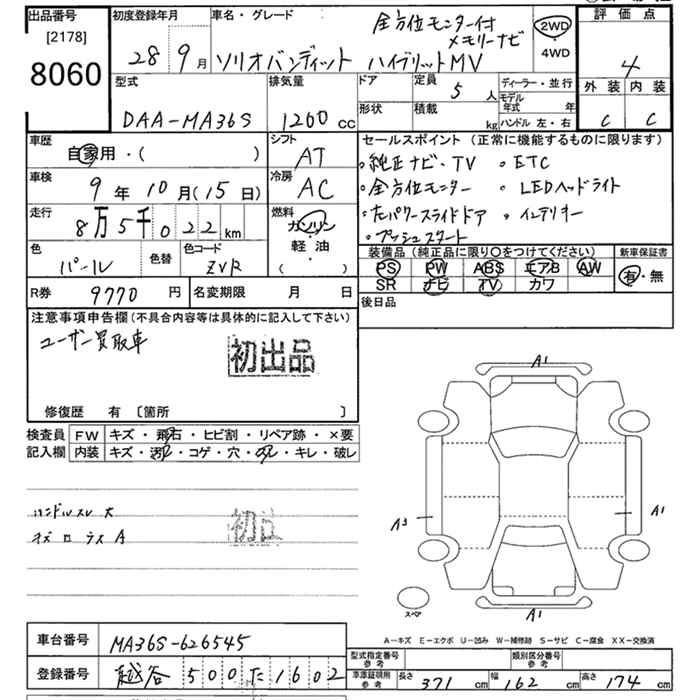 出品番号
[2178]
8060
初度登録年月
28年 9月
車名・グレード
全方位モニター付
メモリーナビ
ソリオバンディット ハイブリットMV
2WD
・
4WD
評価点
4
外装 内装
C C
型式
DAA-MA36S
排気量
1200cc
ドア
形状
定員
5人
積載
kg
ディーラー・並行
モデル年式 年
ハンドル 左・右
車歴
自家用・( )
シフト
AT
車検
9年10月(15日)
冷房
AC
走行
8万5千022km
燃料
ガソリン
軽油
・( )
色
パール
色替
色コード
ZVR
セールスポイント(正常に機能するものに限ります)
・純正ナビ・TV ・ETC
・全方位モニター ・LEDヘッドライト
・左パワースライドドア ・インテリキー
・プッシュスタート
装備品(純正品に限り○をつけてください)
PS PW ABS エアB AW
SR ナビ TV カワ
新車保証書
有・無
R券 9770円
名変期限 月 日
後日品
注意事項申告欄(不具合内容等は具体的に記入して下さい)
ユーザー買取車
初出品
修復歴 有 〔箇所 〕
検査員
記入欄
FW キズ・飛石・ヒビ割・リペア跡・×要
内装 キズ・汚れ・コゲ・穴・スレ・キレ・破レ
ハンドルスレ 大
A1
A3
A1
A1
スペア
A-キズ E-エクボ U-凹み W-補修跡 S-サビ C-腐食 XX-交換済
車台番号 MA36S-626545
登録番号 越谷500た1602
型式指定番号
参考
類別区分番号
参考
車庫証明用
参考
長さ 371cm 幅 162cm 高さ 174cm